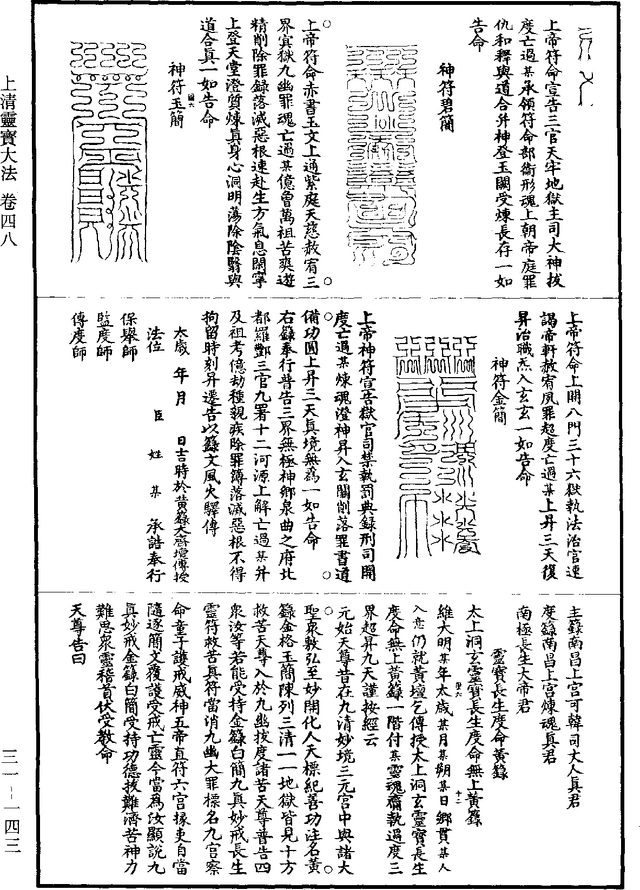 上清靈寶大法 卷四八
三一－一四三
上帝符命宣告三官天牢地獄主司大神拔
度亡過某承領符命部衛形魂上朝帝庭罪
仇和釋與道合并神登玉闕受煉長存一如
告命
神符碧簡
上帝符命赤書玉文上通紫庭天慈赦宥三
界冥獄九幽罪魂亡過某億曾萬祖苦爽遊
精削除罪錄落滅惡根速赴生方氣息閑寧
上登天堂澄質煉真身心洞明蕩除陰翳與
道合真一如告命
神符玉簡
上帝符命上開八門三十六獄執法治官速
謁帝軒赦宥夙罪超度亡過某上昇三天復
昇治職炁入玄玄一如告命
神符金簡
上帝神符宣告獄官司禁執罰典錄刑司開
度亡過某煉魂澄神昇入玄關削落罪書道
備功圓上昇三天真境無為一如告命
右籙奉行普告三界無極神鄉泉曲之府北
都羅酆三官九署十二河源上解亡過某并
及祖考億劫種親疾除罪簿落滅惡根不得
拘留時刻昇遷告以籙文風火驛傳
太歲 年 月 日吉時於黃籙大齋壇傳授
法位 臣 姓 某 承誥奉行
保舉師
監度師
傳度師
主籙南昌上宮可韓司大人真君
度籙南昌上宮煉魂真君
南極長生大帝君
靈寶長生度命黃籙
太上洞玄靈寶長生度命無上黃籙
維大明某年太歲某月某朔某日鄉貫某人
入意仍就黃壇乞傳授太上洞玄靈寶長生
度命無上黃籙一階付某靈魂齋執過度三
界超昇九天謹按經云
元始天尊昔在九清妙境三元宮中與諸大
聖眾敷弘至妙開化人天標紀善功注名黃
籙金格玉簡陳列三清一一地獄皆見十方
救苦天尊入於九幽拔度諸苦天尊普告四
眾汝等若能受持金籙白簡九真妙戒長生
靈符救苦真符當消九幽大罪標名九宮察
命童子護戒威神五帝直符六宮掾吏自當
隨逐簡文復護受戒亡靈今當為汝顯說九
真妙戒金籙白簡受持功德拔難濟苦神力
難思眾靈稽首伏受教命
天尊告曰